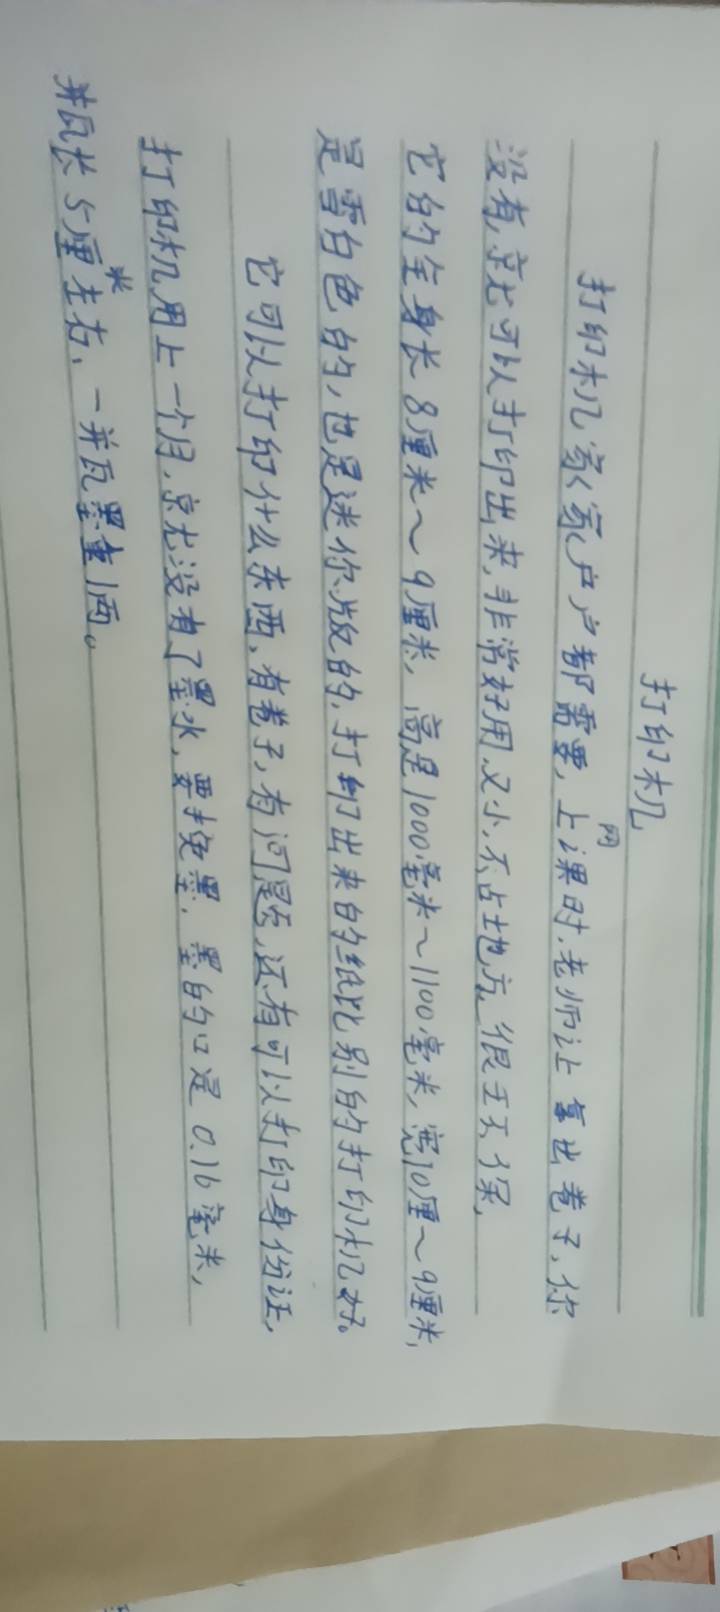 打印机
打印机家家户户都需要，上网课时，老师让拿出卷子，你
没有，就可以打印出来，非常好用，又小，不占地方，很环保，
它的全身长8厘米～9厘米，高是1000毫米～1100毫米，宽10厘～9厘米，
是雪白色的，也是迷你版的，打印出来的纸比别的打印机好。
它可以打印什么东西，有卷子，有问题，还有可以打印身份证，
打印机用上一个月，就没有了墨水，要换墨，墨的口是0.16毫米，
并瓦长5厘米左右、一并瓦墨重1两。